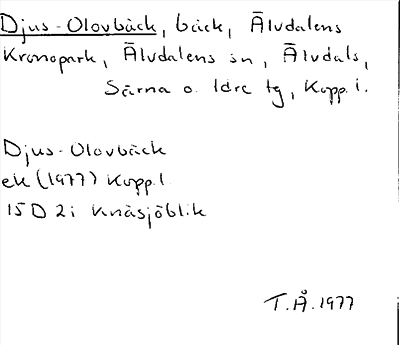 Djus-Olovbäck, bäck, Älvdalens
Kronopark, Älvdalens sn, Älvdals,
Särna o. Idre tg, Kopp. l.
Djus-Olovbäck
ek (1977) Kopp. l.
15 D 2 i Knäsjöblik
T.Å. 1977